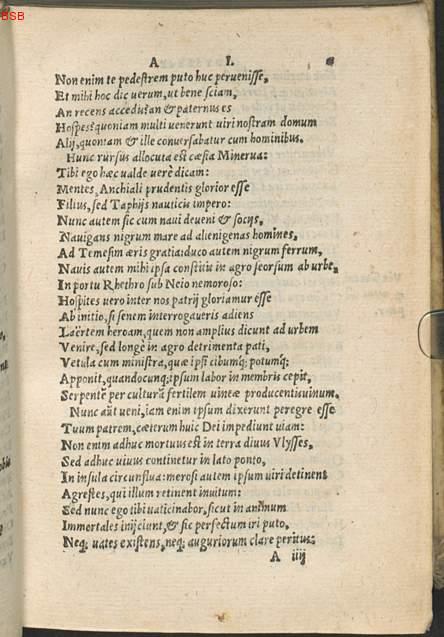 BSB
A I.
Non enim te pedestrem puto huc peruenisse,
Et mihi hoc dic uerum, ut bene sciam,
An recens accedis? an & paternus es
Hospes? quoniam multi uenerunt uiri nostram domum
Alij, quoniam & ille conuersabatur cum hominibus.
Hunc rursus allocuta est cæsia Minerua:
Tibi ego hæc ualde uerè dicam:
Mentes, Anchiali prudentis glorior esse
Filius, sed Taphijs nauticis impero:
Nunc autem sic cum naui deueni & socijs,
Nauigans nigrum mare ad alienigenas homines,
Ad Temesim æris gratia: duco autem nigrum ferrum,
Nauis autem mihi ipsa constitit in agro seorsum ab urbe,
In portu Rhethro sub Neio nemoroso:
Hospites uero inter nos patrij gloriamur esse
Ab initio, si senem interrogaueris adiens
Laërtem heroam, quem non amplius dicunt ad urbem
Venire, sed longè in agro detrimenta pati,
Vetula cum ministra, quæ ipsi cibumq; potumq;
Apponit, quandocunq; ipsum labor in membris cepit,
Serpentẽ per culturã fertilem uineæ producentis uinum.
Nunc aũt ueni, iam enim ipsum dixerunt peregre esse
Tuum patrem, cæterum huic Dei impediunt uiam:
Non enim adhuc mortuus est in terra diuus Vlysses,
Sed adhuc uiuus continetur in lato ponto,
In insula circunflua: merosi autem ipsum uiri detinent
Agrestes, qui illum retinent inuitum:
Sed nunc ego tibi uaticinabor, sicut in animum
Immertales inijciunt, & sic perfectum iri puto,
Neq; uates existens, neq; auguriorum clare peritus:
A iiij